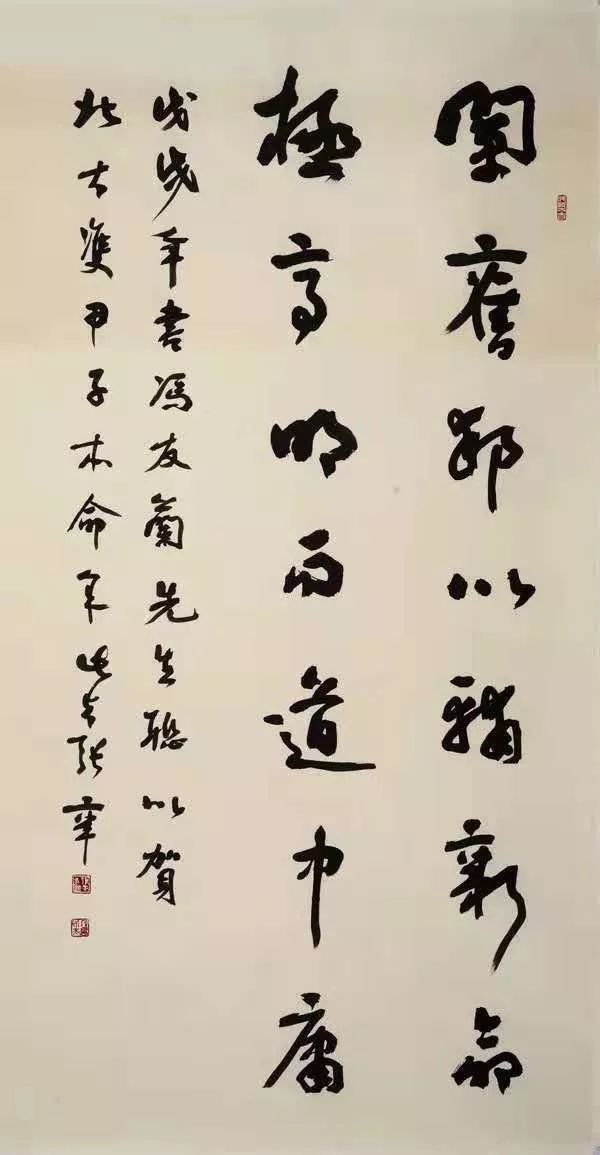 闡舊邦以輔新命
極高明而道中庸
戊戌年書馮友蘭先生聯以賀
北大雙甲子本命年張辛